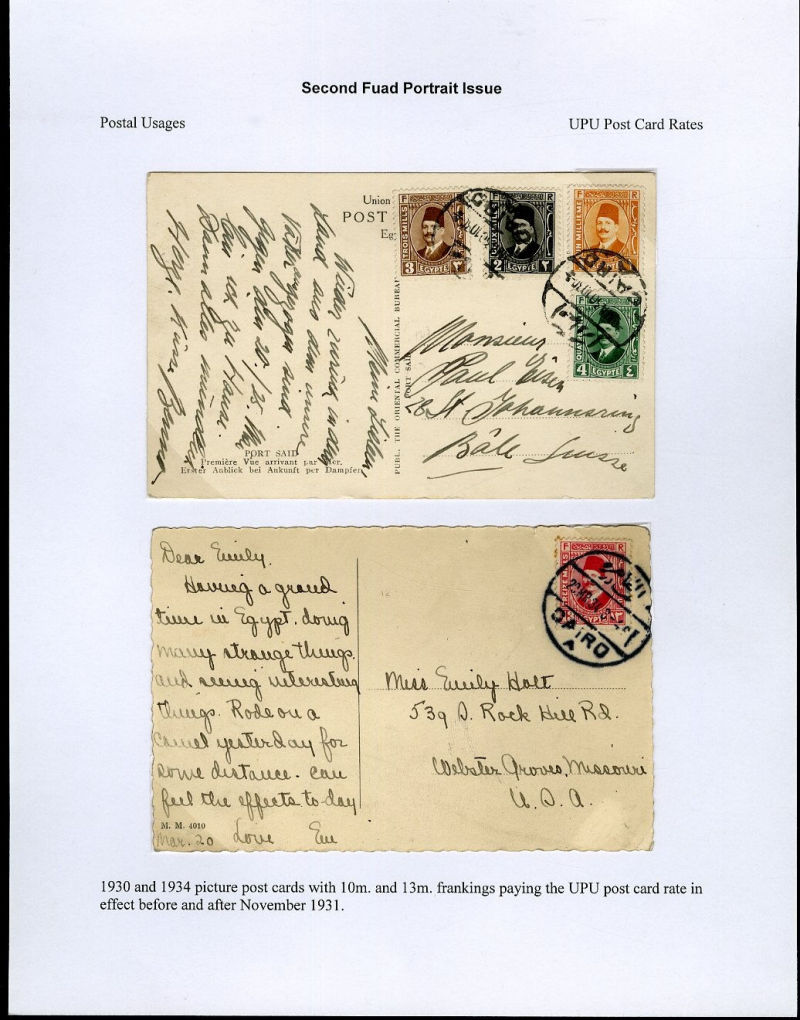 Second Fuad Portrait Issue
Postal Usages
UPU Post Card Rates
Union
POST
Eg
F R
TROIS MILLS
3 ٣
EGYPTE
F R
DEUX MILLS
2 ٢
EGYPTE
F R
UN MILLIEME
CAIRO
F
4 ٤
EGYPTE
Meine Lieben
Wieder zurück in dem
aus dem innern
sind.
den 20./25. Mai
ich zu Hause.
Dann alles mündlich
PUBL. THE ORIENTAL COMMERCIAL BUREAU PORT SAID
Monsieur
Paul
St Johannsring
Bâle Suisse
PORT SAID
Première Vue arrivant par Mer.
Erster Anblick bei Ankunft per Dampfer
Dear Emily.
Having a grand
time in Egypt, doing
many strange things
and seeing interesting
things. Rode on a
camel yesterday for
some distance. can
feel the effects to-day
Love
M. M. 4010
Mar. 20
F R
TREIZE MILLS
EGYPTE
CAIRO
A
Miss Emily Holt
539 S. Rock Hill Rd.
Webster Groves, Missouri
U. S. A.
1930 and 1934 picture post cards with 10m. and 13m. frankings paying the UPU post card rate in
effect before and after November 1931.